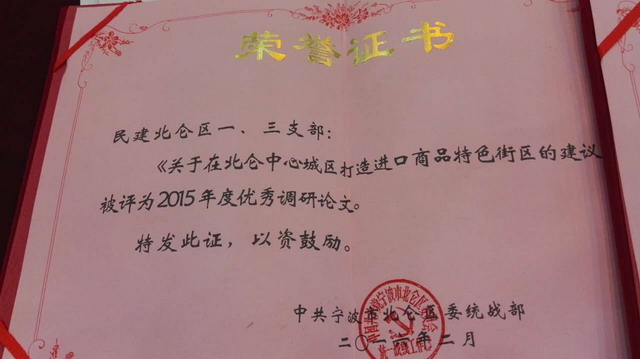 荣誉证书
民建北仑区一、三支部：
《关于在北仑中心城区打造进口商品特色街区的建议
被评为2015年度优秀调研论文。
特发此证，以资鼓励。
中共宁波市北仑区委统战部
二〇一六年二月